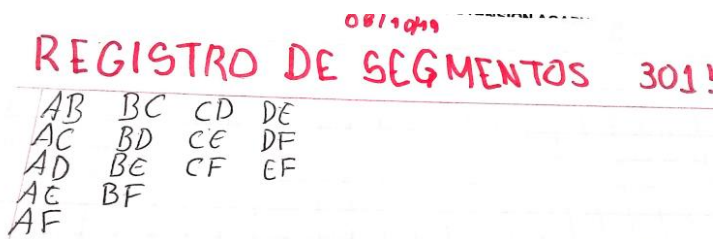 08/10/19
REGISTRO DE SEGMENTOS 301
AB BC CD DE
AC BD CE DF
AD BE CF EF
AE BF
AF